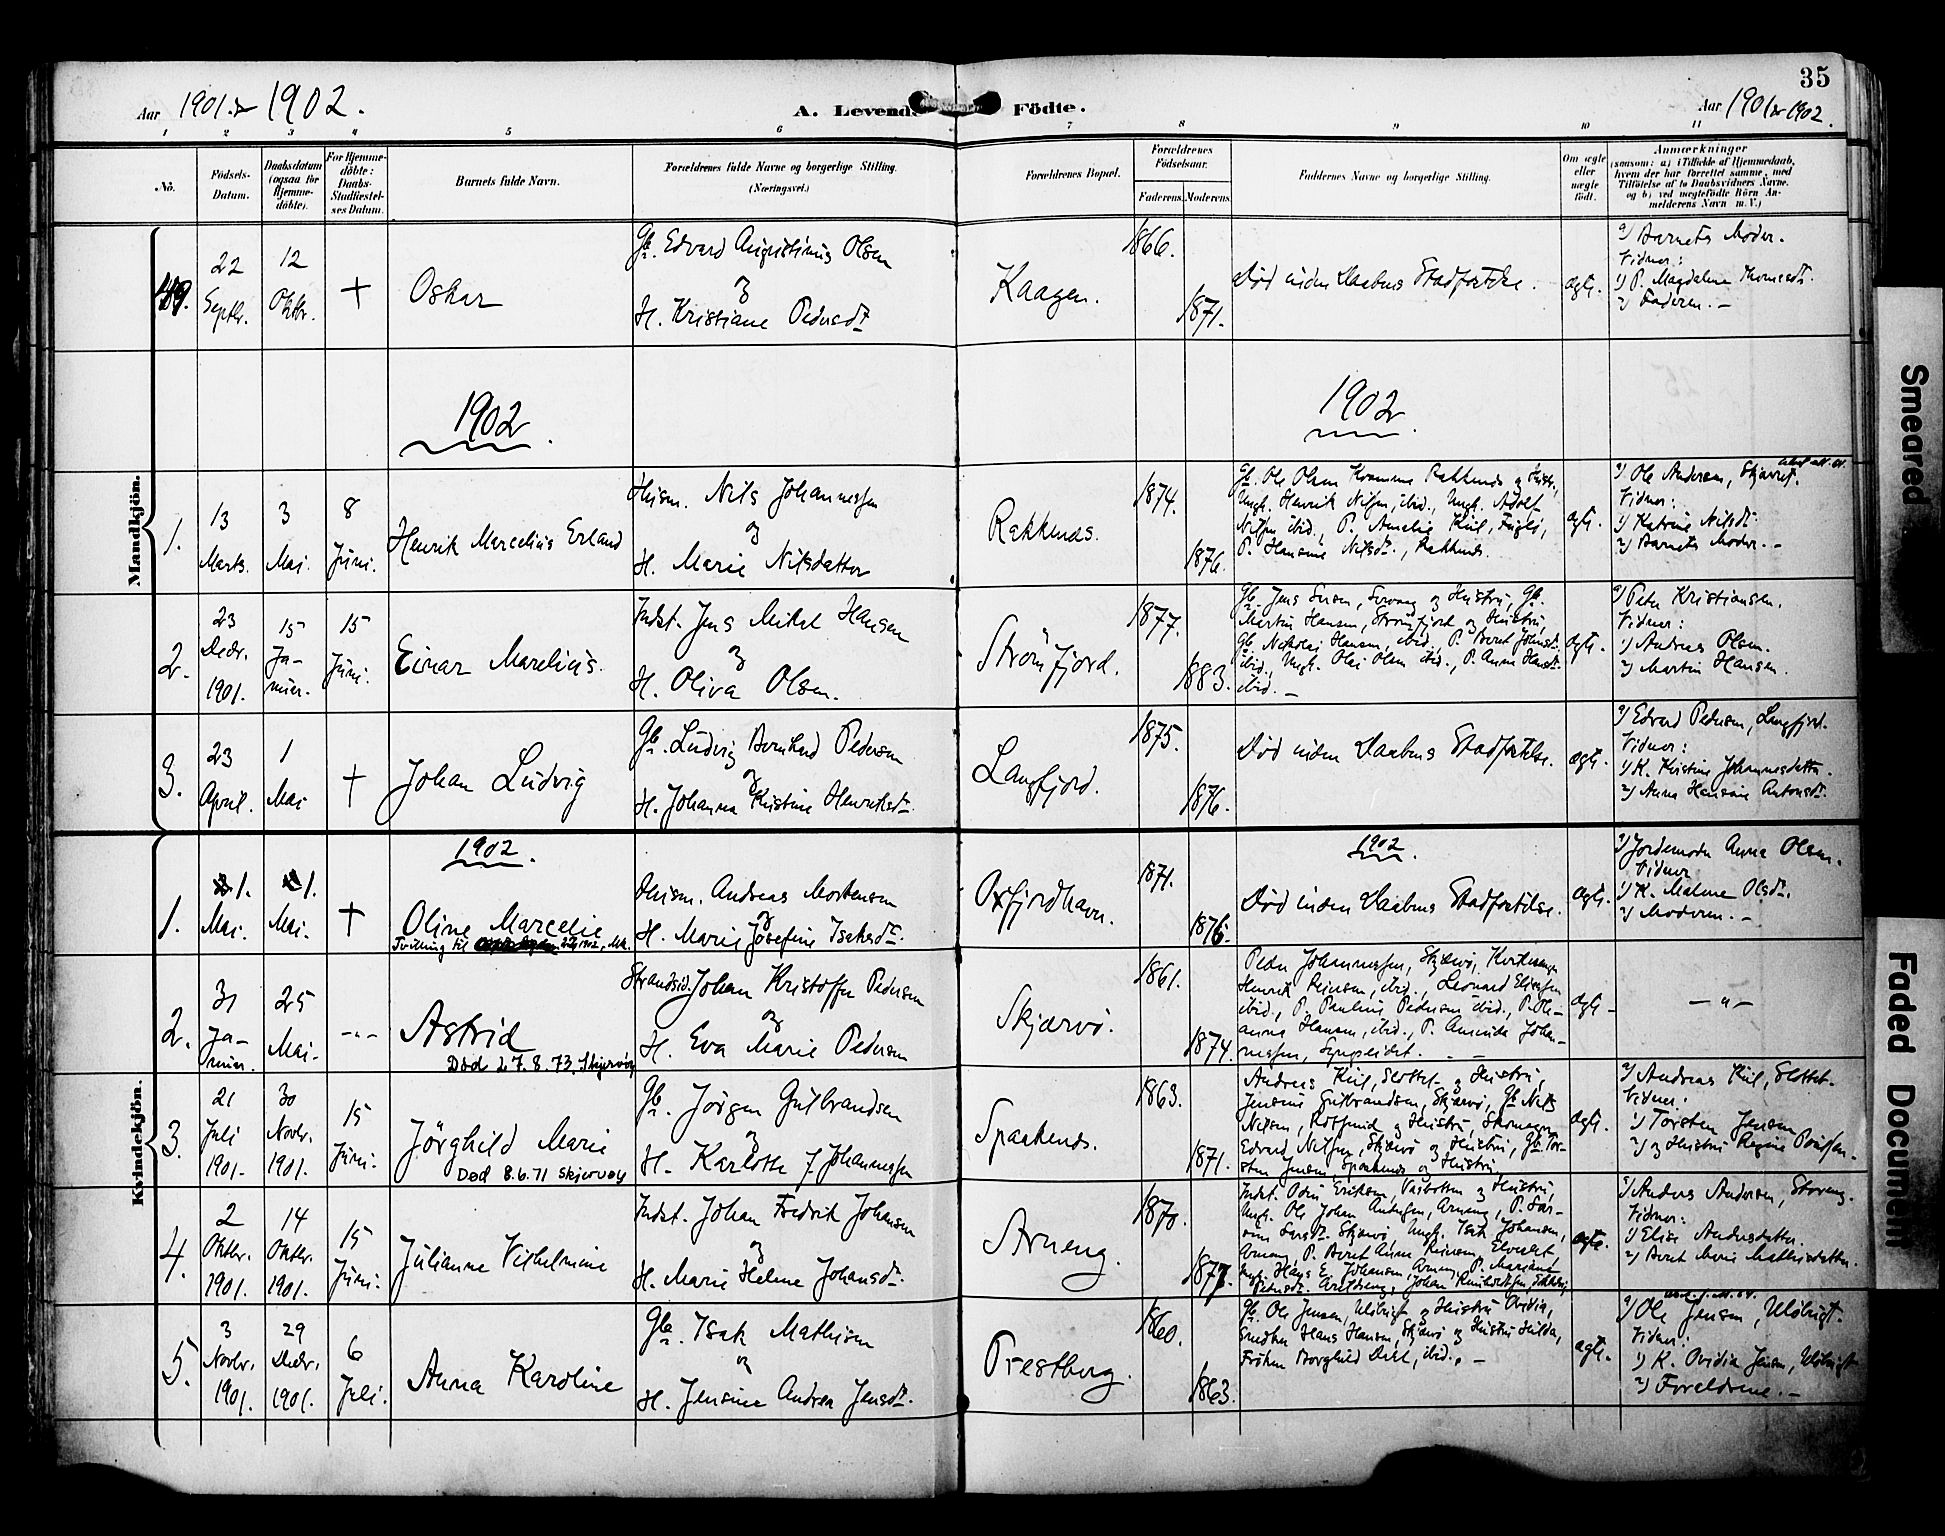 35
Aar 1901 & 1902.
A. Levende Födte.
Aar 1901 & 1902.
1 2 3 4 5 6 7 8 9 10 11
No.
Födsels-
Datum.
Daabsdatum
(ogsaa for
Hjemme-
döbte).
For Hjemme-
döbte:
Daabs-
Stadfæstel-
ses Datum.
Barnets fulde Navn.
Forældrenes fulde Navne og borgerlige Stilling.
(Næringsvei.)
Forældrenes Bopæl.
Forældrenes
Födselsaar.
Faderens. Moderens.
Faddernes Navne og borgerlige Stilling.
Om ægte
eller
uægte
født.
Anmærkninger
(saasom: a) i Tilfælde af Hjemmedaab,
hvem der har forrettet samme, med
Tilföielse af to Daabsvidners Navne,
og b) ved uægtefödte Börn An-
melderens Navn m. V.)
Mandkjön.
49.
22
Septbr.
12
Oktbr.
+
Oskar
Gb. Edvard Augustinus Olsen
og
H. Kristiane Pedersdt.
Kaagen.
1866.
1871.
Död inden Daabens Stadfestelse.
ægte.
a) Barnets Moder.
Vidner:
1) P. Magdalene Thomasdt.
2) Faderen. —
1902.
1902.
1.
13
Marts.
3
Mai.
8
Juni.
Henrik Marcelius Erland
Husm. Nils Johannessen
og
H. Marie Nilsdatter
Rakkenes.
1874.
1876.
Gb. Ole Olsen Rakkenes og Hustru,
Ungk. Henrik Nilsen, ibid., Ungk. Adolf
Nilsen ibid., P. Amalie Kiil, Fuglö,
P. Hansine Nilsdt., Rakkenes.
ægte.
a) Ole Andersen, Skjærvö.
Vidner:
1) Katrine Nilsdt.
2) Barnets Moder. —
2.
23
Decbr.
1901.
15
Ja-
nuar.
15
Juni.
Einar Marelius.
Indst. Jens Mikal Hansen
og
H. Oliva Olsen.
Strömfjord.
1877.
1883.
Gb. Jens og Hustru, Gb.
Martin Hansen, Strömfjord og Hustru,
Gb. Nikolai Hansen, ibid., P. Berit Johnsdt.
ibid., Ungk. Olai Olsen ibid., P. Anne Hansdt.
ibid. —
ægte.
a) Peter Kristiansen.
Vidner:
1) Andreas Olsen.
2) Martin Hansen.
3.
23
April.
1
Mai
+
Johan Ludvig
Gb. Ludvig Bernhard Pedersen
og
H. Johanna Kristine Henriksdt.
Langfjord.
1875.
1876.
Död inden Daabens Stadfestelse.
ægte.
a) Edvard Pedersen, Langfjord.
Vidner:
1) K. Kristine Johannesdatter.
2) Anna Hansine Antonsdt.
Kvindekjön.
1902.
1902.
1.
1.
Mai.
1.
Mai.
+
Oline Marcelie
Tvilling til
Husm. Andreas Mortensen
og
H. Marie Josefine Isaksdt.
Oxfjordhavn.
1871.
1876.
Död inden Daabens Stadfestelse.
ægte.
a) Jordemoder Anna Olsen.
Vidner
1) K. Malene Olsdt.
2) Moderen. —
2.
31
Ja-
nuar.
25
Mai.
-"-
Astrid
Død 27.8.73. Skjervøy
Strandsid. Johan Kristoffer Pedersen
og
H. Eva Marie Pedersen
Skjærvö.
1861.
1874.
Peder Johannessen, Skjærvö,
Henrik Reiersen, ibid., Leonard Eliassen
ibid., P. Pauline Pedersen ibid., P. Ole-
anna Hansen, ibid., P. Amanda Johan-
nessen,
ægte
— " —
3.
21
Juli
1901.
30
Novbr.
1901.
15
Juni.
Jörghild Marie
Død 8.6.71 Skjervøy
Gb. Jörgen Gulbrandsen
og
H. Karlotte J. Johannessen
Spaakenes.
1863.
1871.
Andreas Kiil, Slettet og Hustru,
Jensine Gulbrandsen, Skjærvö, Gb. Nils
Nilsen, Rotsund og Hustru,
Edvard Nilsen, Skjærvö og Hustru, Gb. Tor-
sten Jensen, Spaakenes og Hustru,
ægte.
a) Andreas Kiil, Slettet.
Vidner:
1) Torsten Jensen
2) og Hustru Regine
4.
2
Oktbr.
1901.
14
Oktbr.
1901.
15
Juni.
Julianne Vilhelmine
Indst. Johan Fredrik Johansen
og
H. Marie Helene Johansdt.
Arneng.
1870.
1877.
Indst. Odin Eriksen, Vasbotten og Hustru,
Ungk. Ole Johan Antonsen, Arneng, P. Sar-
Skjærvö, Ungk. Isak Johansen,
Arneng, P. Berit Anne Reiersen, Elvevolt,
Ungk. Hans E. Johansen, Arneng, P. Mariane
ægte.
a) Anders Andersen, Storeng.
Vidner:
1) Elise Andersdatter.
2) Berit Marie Mathisdatter.
5.
3
Novbr.
1901.
29
Decbr.
1901.
6
Juli.
Anna Karoline
Gb. Isak Mathisen
og
H. Jensine Andrea Jensdt.
Prestberg.
1860.
1863.
Gb. Ole Jensen, og Hustru Ovidia,
Smeden Hans Hansen, Skjærvö og Hustru Hilda,
Fröken Borghild ibid. —
ægte.
a) Ole Jensen,
Vidner:
1) K. Ovidia Jensen,
2) Forældrene. —
Smeared
Faded Document